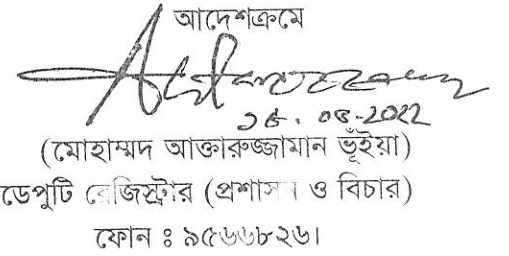 আদেশক্রমে
(মোহাম্মদ আক্তারুজ্জামান ভূঁইয়া)
ডেপুটি রেজিস্ট্রার (প্রশাসন ও বিচার)
ফোন ঃ ৯৫৬৬৮২৬।